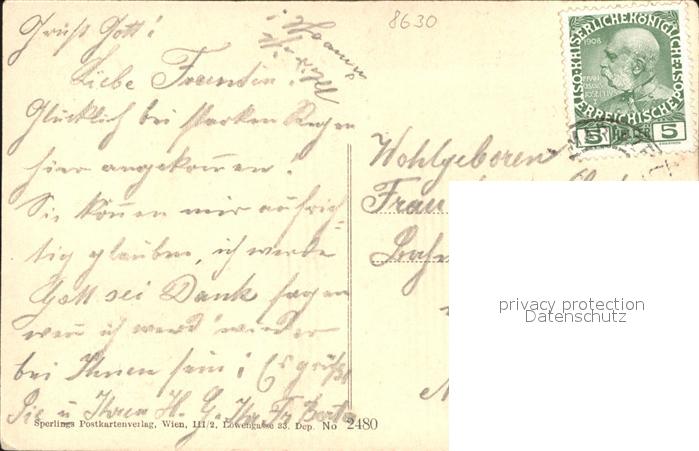 8630
Grüß Gott!
Liebe Freundin!
Glücklich bei starken Regen
hier angekommen!
Sie können mir aufrich-
tig glauben, ich werde
Gott sei Dank sagen
wenn ich werd' wieder
bei Ihnen sein! Es grüßt
Sie u Ihren H. G. Ihr Fr Berta
Wohlgeboren
Frau
Bahn
KAISERLICHEKÖNIGLICHE
ÖSTERREICHISCHE
1908
5 5
privacy protection
Datenschutz
Sperlings Postkartenverlag, Wien, III/2, Löwengasse 33. Dep. No 2480